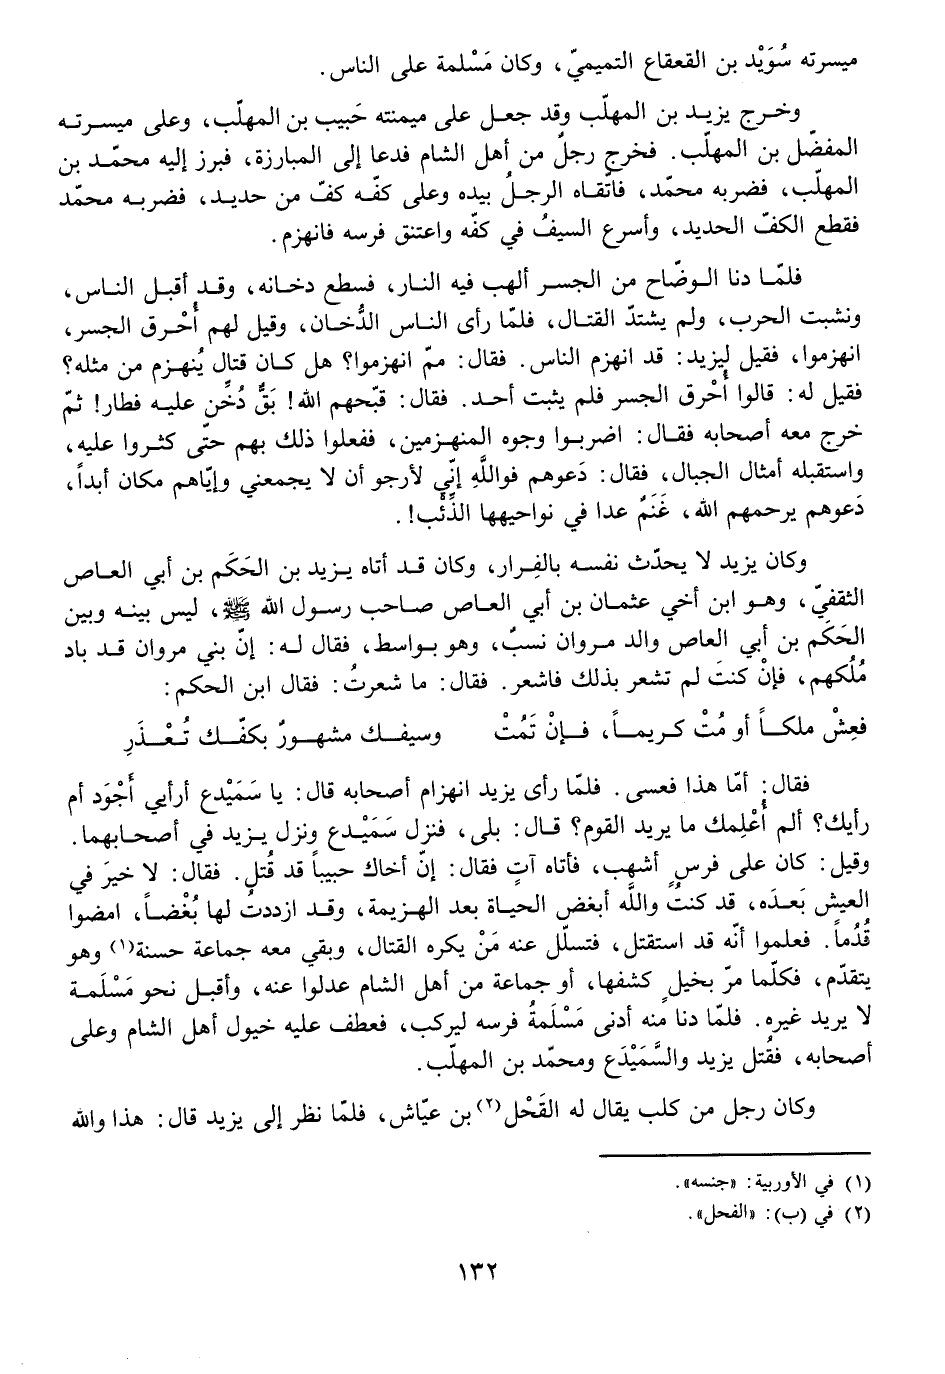 ميسرته سُوَيْد بن القعقاع التميميّ، وكان مَسْلمة على الناس.
وخرج يزيد بن المهلّب وقد جعل على ميمنته حَبيب بن المهلّب، وعلى ميسرته
المفضّل بن المهلّب. فخرج رجلٌ من أهل الشام فدعا إلى المبارزة، فبرز إليه محمّد بن
المهلّب، فضربه محمّد، فاتّقاه الرجلُ بيده وعلى كفّه كفّ من حديد، فضربه محمّد
فقطع الكفّ الحديد، وأسرع السيفُ في كفّه واعتنق فرسه فانهزم.
فلمّا دنا الوضّاح من الجسر ألهب فيه النار، فسطع دخانه، وقد أقبل الناس،
ونشبت الحرب، ولم يشتدّ القتال، فلمّا رأى الناس الدُّخان، وقيل لهم أُحْرق الجسر،
انهزموا، فقيل لِيزيد: قد انهزم الناس. فقال: ممّ انهزموا؟ هل كان قتال يُنهزم من مثله؟
فقيل له: قالوا أُحْرق الجسر فلم يثبت أحد. فقال: قبّحهم الله! بَقٌّ دُخِّن عليه فطار! ثمّ
خرج معه أصحابه فقال: اضربوا وجوه المنهزمين، ففعلوا ذلك بهم حتّى كثروا عليه،
واستقبله أمثال الجبال، فقال: دَعوهم فواللَّهِ إنّي لأرجو أن لا يجمعني وإيّاهم مكان أبداً،
دَعوهم يرحمهم الله، غَنَمٌ عدا في نواحيها الذِّئْب!.
وكان يزيد لا يحدّث نفسه بالفِرار، وكان قد أتاه يزيد بن الحَكَم بن أبي العاص
الثقفيّ، وهو ابن أخي عثمان بن أبي العاص صاحب رسول الله ﷺ، ليس بينه وبين
الحَكَم بن أبي العاص والد مروان نسبٌ، وهو بواسط، فقال له: إنّ بني مروان قد باد
مُلْكهم، فإنْ كنتَ لم تشعر بذلك فاشعر. فقال: ما شعرتُ: فقال ابن الحكم:
فعِشْ ملكاً أو مُتْ كريماً، فإنْ تَمُتْ وسيفك مشهورٌ بكفّك تُعْذَرِ
فقال: أمّا هذا فعسى. فلمّا رأى يزيد انهزام أصحابه قال: يا سَمَيْدع أرأيي أَجْوَد أم
رأيك؟ ألم أُعْلِمك ما يريد القوم؟ قال: بلى، فنزل سَمَيْدع ونزل يزيد في أصحابهما.
وقيل: كان على فرسٍ أشهب، فأتاه آتٍ فقال: إنّ أخاك حبيباً قد قُتل. فقال: لا خيرَ في
العيش بَعدَه، قد كنتُ واللَّه أبغض الحياة بعد الهزيمة، وقد ازددتُ لها بُغْضاً، امضوا
قُدُماً. فعلموا أنّه قد استقتل، فتسلّل عنه مَنْ يكره القتال، وبقي معه جماعة حسنة(١) وهو
يتقدّم، فكلّما مرّ بخيلٍ كشفها، أو جماعة من أهل الشام عدلوا عنه، وأقبل نحو مَسْلَمة
لا يريد غيره. فلمّا دنا منه أدنى مَسْلَمةُ فرسه ليركب، فعطف عليه خيول أهل الشام وعلى
أصحابه، فقُتل يزيد والسَّمَيْدَع ومحمّد بن المهلّب.
وكان رجل من كلب يقال له القَحْل(٢) بن عيّاش، فلمّا نظر إلى يزيد قال: هذا والله
(١) في الأوربية: «جنسه».
(٢) في (ب): «الفحل».
١٣٢